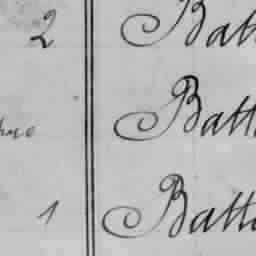 2 Batt
Batt
1 Batt